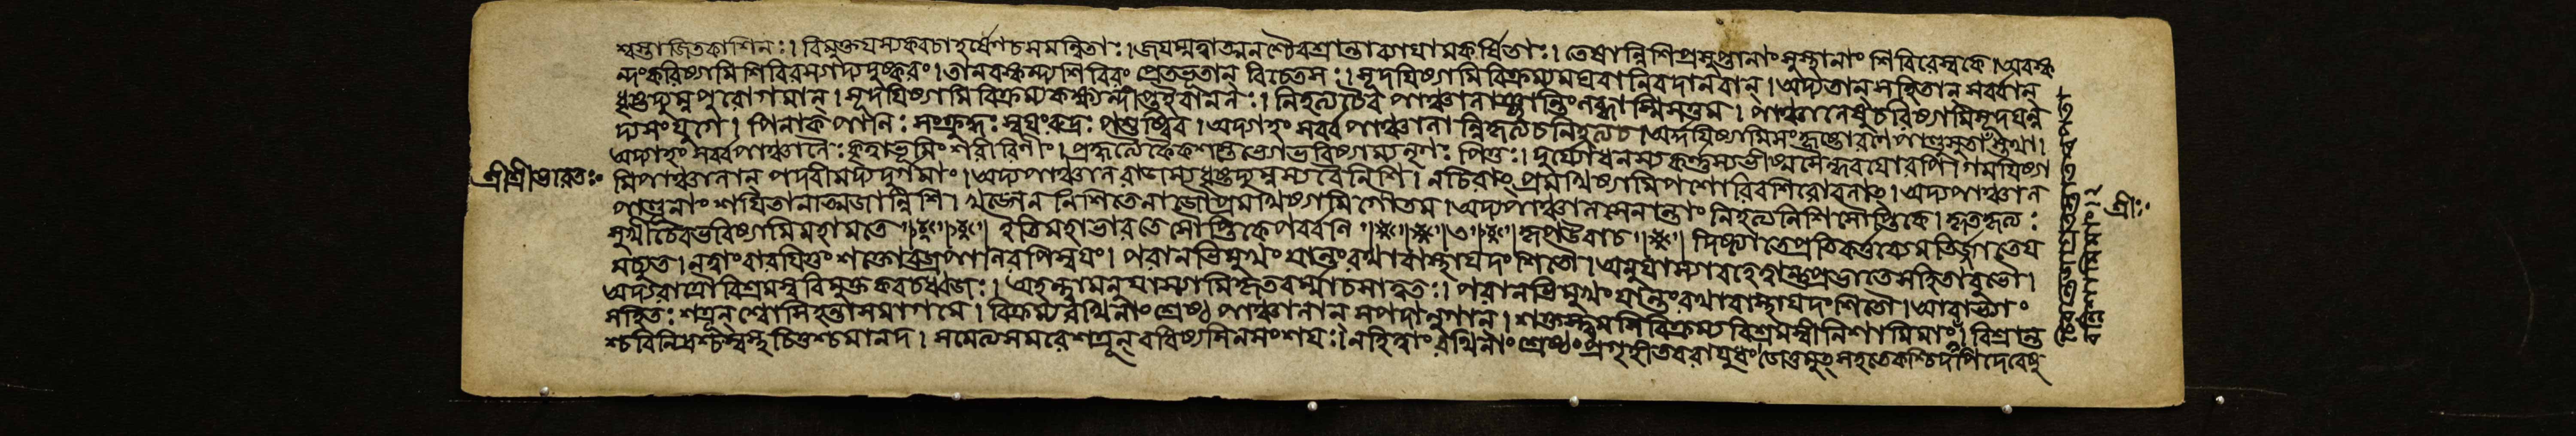 শ্বস্তা জিতকাশিনঃ । বিমুক্তযস্যকবচাহর্ষেণচসমন্বিতাঃ । জযম্মত্বাত্মনশ্চৈবশ্রান্তাব্যাযামকর্ষিতাঃ । তেষান্নিশিপ্রসুপ্তানাং সুস্থানাং শিবিরেস্বকে । অবস্ক
ন্দংকরিষ্যামি শিবিরস্যাদ্যদুষ্করং । তানবস্কন্দ্যশিবিরং প্রেতভূতান্ বিচেতসঃ । সূদযিষ্যামিবিক্রম্যমঘবানিবদানবান্ । অদ্যতান্ সহিতান্ সর্ব্বান্
ধৃষ্টদ্যুম্নপুরোগমান্ । সূদযিষ্যামিবিক্রম্যকক্ষন্দীপ্তইবানলঃ । নিহত্যচৈব পাঞ্চালাঞ্ছান্তিংলব্ধাস্মিসত্তম । পাঞ্চালেষুচরিষ্যামিসূদযন্ন
দ্যসংযুগে । পিনাকপাণিঃ সংক্রুদ্ধঃ স্বযংরুদ্রঃ পশুষ্বিব । অদ্যাহং সর্ব্বপাঞ্চালা ন্নিহত্যচনিকৃত্যচ । অর্দ্দযিষ্যামিসংহৃষ্টোরণেপাণ্ডুসুতাংস্তথা ।
অদ্যাহং সর্ব্বপাঞ্চালৈঃ কৃত্বাভূমিং শরীরিণীং । প্রহৃত্যৈকৈকশস্তেভ্যোভবিষ্যাম্যনৃণঃ পিতুঃ । দুর্য্যোধনস্যকর্ণস্যভীষ্মসৈন্ধবযোরপি । গমযিষ্যা
শ্রীশ্রীভারতঃ
মিপাঞ্চালান্ পদবীমদ্যদুর্গমাং । অদ্যপাঞ্চালরাজস্যধৃষ্টদ্যুম্নস্যবৈনিশি । নচিরাৎ প্রমথিষ্যামিপশোরিবশিরোবলাৎ । অদ্যপাঞ্চাল
পাণ্ডূনাং শযিতানাত্মজান্নিশি । খড্গেন নিশিতেনাজৌপ্রমথিষ্যামিগৌতম । অদ্যপাঞ্চালসেনান্তাং নিহত্যনিশিসৌপ্তিকে । কৃতকৃত্যঃ
শ্রীঃ
সুখীচৈবভবিষ্যামিমহামতে ॥ ইতিমহাভারতে সৌপ্তিকেপর্ব্বণি ॥ ৩ ॥ কৃপউবাচ ॥ দিষ্ট্যাতেপ্রতিকর্ত্তব্যেমতির্জ্জাতেয
মচ্যুত । নত্বাংবারযিতুং শক্তোবজ্রপাণিরপিস্বযং । পরানভিমুখং যান্তংরথাবাস্থাযদংশিতৌ । অনুযাস্যাবহেত্বান্তুপ্রভাতেসহিতাবুভৌ ।
অদ্যরাত্রৌবিশ্রমস্ববিমুক্তকবচধ্বজঃ । অহন্ত্বামনুযাস্যামিকৃতবর্ম্মাচসাত্বতঃ । পরানভিমুখং যান্তংরথাবাস্থাযদংশিতৌ । আবাভ্যাং
সহিতঃ শত্রূন্ শ্বোসিহন্তাসমাগমে । বিক্রম্যরথিনাং শ্রেষ্ঠ পাঞ্চালান্ সপদানুগান্ । শক্তস্ত্বমসিবিক্রম্যবিশ্রমস্বনিশামিমাং । বিশ্রান্ত
শ্চবিনিদ্রশ্চস্বস্থচিত্তশ্চমানদ । সমেত্যসমরেশত্রূন্ বধিষ্যসিনসংশযঃ । নহিত্বাং রথিনাং শ্রেষ্ঠংপ্রগৃহীতবরাযুধং । জেতুমুৎসহতেকশ্চিদপিদেবেষু